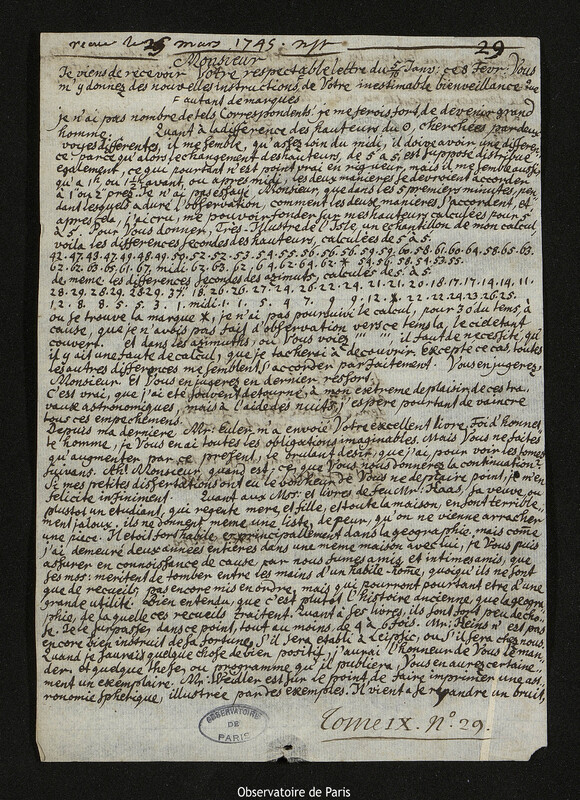 recue le 25 mars 1745. nst 29
Monsieur
Je viens de recevoir Votre respectable lettre du Janv. ce 8 Fevr. Vous
m'y donnez des nouvelles instructions, de Votre inestimable bienveillance que
= autant de marques
je n'ai pas nombre de tels Correspondents je me ferois fort de devenir grand
homme. Quant à la difference des hauteurs du ☉, cherchées par deux
voyes differentes, il me semble, qu'assez loin du midi, il doive avoir une differen-
ce: parce qu'alors le changement des hauteurs, de 5 à 5, est supposé distribué
egalement, ce qui pourtant n'est point vrai en rigueur, mais il me semble aussi
qu'a 1h, ou ½ avant, ou apres midi, les deux manieres se devroient accorder
à 1" ou ½ près. Je n'ai pas essayé Monsieur, que dans les 5 premiers minutes, pen-
dant lesquels a duré l'observation, comment les deux manieres s'accordent, et
apres cela, j'ai cru, me pouvoir fonder sur mes hauteurs calculées pour 5
à 5. Pour Vous donner, Tres-Illustre de l'Isle, un echantillon de mon calcul
voila les differences secondes des hauteurs, calculées de 5 à 5.
42. 47. 43. 47. 49. 48. 49. 59. 52. 52. 53. 54. 55. 56. 56. 56. 59. 59. 60. 58. 61. 60. 64. 58. 65. 63.
62. 62. 63. 65. 61. 67. midi. 62. 63. 62. 64. 62. 64. 62. 54. 56. 58. 54. 53. 55.
de meme les differences secondes des azimuts, calculés de 5 à 5.
28. 29. 28. 29. 28. 29. 37. 18. 26. 26. 27. 24. 26. 22. 24. 21. 21. 20. 18. 17. 17. 14. 14. 11.
12. 8. 8. 5. 5. 1. 1, midi. 1. 1. 5. 4. 7. 9. 9. 12. x. 22. 22. 24. 23. 26. 25.
ou se trouve la marque X, je n'ai pas poursuivi le calcul, pour 30' du tems, à
cause, que je n'avois pas fait d'observation vers ce tems la, le ciel etant
couvert. et dans les azimuths, ou Vous voiez il faut de necessité, qu'
il y ait une faute de calcul, que je tacherai à decouvrir. Excepté ce cas, toutes
les autres differences me semblent s'accorder parfaitement. Vous en jugerez
Monsieur. Et Vous en jugeres en dernier ressort.
C'est vrai, que j'ai eté souvent detourné, à mon extreme deplaisir de ces tra-
vaux astronomiques, mais à l'aide des nuits, j'espère pourtant de vaincre
tous ces empechemens.
Depuis ma derniere, Mr. Euler m'a envoié Votre excellent livre. Foi d'honnet-
te homme, je Vous en ai toutes les obligations imaginables. Mais Vous ne faites
qu'augmenter par ce présent, le brulant desir, que j'ai, pour voir les tomes
suivans. Ah! Monsieur, quand est-ce, que Vous nous donnerez la continuation?
Si mes petites dissertations ont eu le bonheur de Vous ne deplaire point, je m'en
felicite infiniment. Quant aux Msst: et livres de feu Mr. Haas, sa veuve, ou
plustot un etudiant, qui regente mere, et fille, et toute la maison, en sont terrible-
ment jaloux. ils ne donnent meme une liste, de peur, qu'on ne vienne arracher
une piece. Il etoit fort habile, et principallement dans la geographie. mais comme
j'ai demeuré deux années entieres dans une meme maison avec lui, je Vous puis
assurer en connoissance de cause, par nous fumes amis, et intimes amis, que
ses msst: meritent de tomber entre les mains d'un habile-home, quoiqu'ils ne sont
que de recueils, pas encore mis en ordre, mais qui pourront pourtant etre d'une
grande utilité. Bien entendu, que c'est plutot l'histoire ancienne, que la geogra-
phie, de laquelle ces recueils traitent. Quant à ses livres, ils sont fort peu de cho-
se. Je le surpasse dans ce point, tout au moins, de 4 à 6 fois. Mr. Heins n'est pas
encore bien instruit de sa fortune, s'il sera etabli à Leipsic, ou s'il sera chez nous.
Quand je saurai quelque chose de bien positif, j'aurai l'honneur de Vous le man-
der: et quelque these, ou programme qu'il publiera, Vous en aurez certaine-
ment un exemplaire. Mr. Weidler est sur le point de faire imprimer une ast-
ronomie spherique, illustrée par des exemples. Il vient a se repandre un bruit,
OBSERVATOIRE
DE
PARIS
Tome IX. No. 29.
Observatoire de Paris